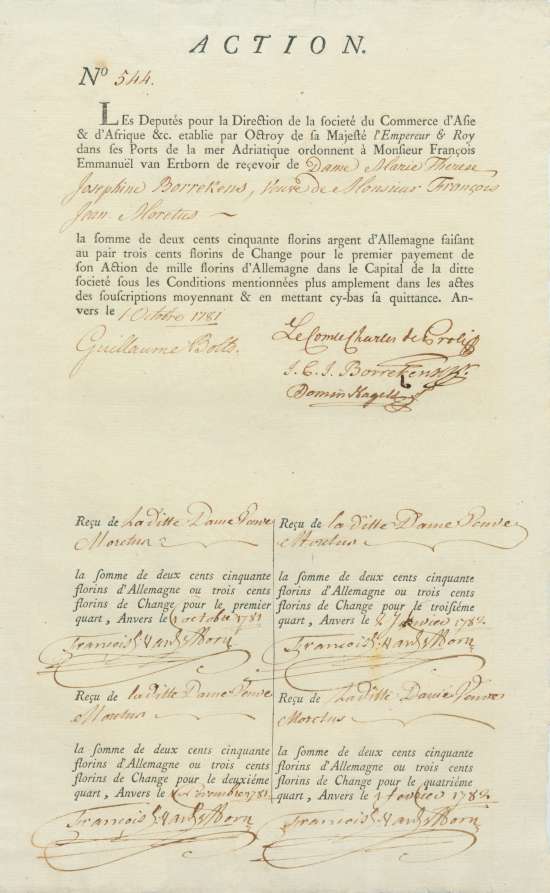 ACTION.
Nº 544.
LEs Deputés pour la Direction de la societé du Commerce d'Asie
& d'Afrique &c. etablie par Octroy de sa Majesté l'Empereur & Roy
dans ses Ports de la mer Adriatique ordonnent à Monsieur François
Emmanuël van Ertborn de reçevoir de Dame Marie Therese
Josephine Borrekens, Veuve de Monsieur François
Jean Moretus
la somme de deux cents cinquante florins argent d'Allemagne faisant
au pair trois cents florins de Change pour le premier payement de
son Action de mille florins d'Allemagne dans le Capital de la ditte
societé sous les Conditions mentionnées plus amplement dans les actes
des souscriptions moyennant & en mettant cy-bas sa quittance. An-
vers le 1 Octobre 1781
Guillaume Bolts.
Le Comte Charles de Proli
J. C. J. Borrekens
Domin Nagels
Reçu de La ditte Dame Veuve
Moretus
la somme de deux cents cinquante
florins d'Allemagne ou trois cents
florins de Change pour le premier
quart, Anvers le 1 octobre 1781
François E. Van Ertborn
Reçu de la ditte Dame Veuve
Moretus
la somme de deux cents cinquante
florins d'Allemagne ou trois cents
florins de Change pour le troisiéme
quart, Anvers le fevrier 1782
François E. Van Ertborn
Reçu de la ditte Dame Veuve
Moretus
la somme de deux cents cinquante
florins d'Allemagne ou trois cents
florins de Change pour le deuxiéme
quart, Anvers le 1781
François E. Van Ertborn
Reçu de La ditte Dame Veuve
Moretus
la somme de deux cents cinquante
florins d'Allemagne ou trois cents
florins de Change pour le quatriéme
quart, Anvers le fevrier 1782
François E. Van Ertborn